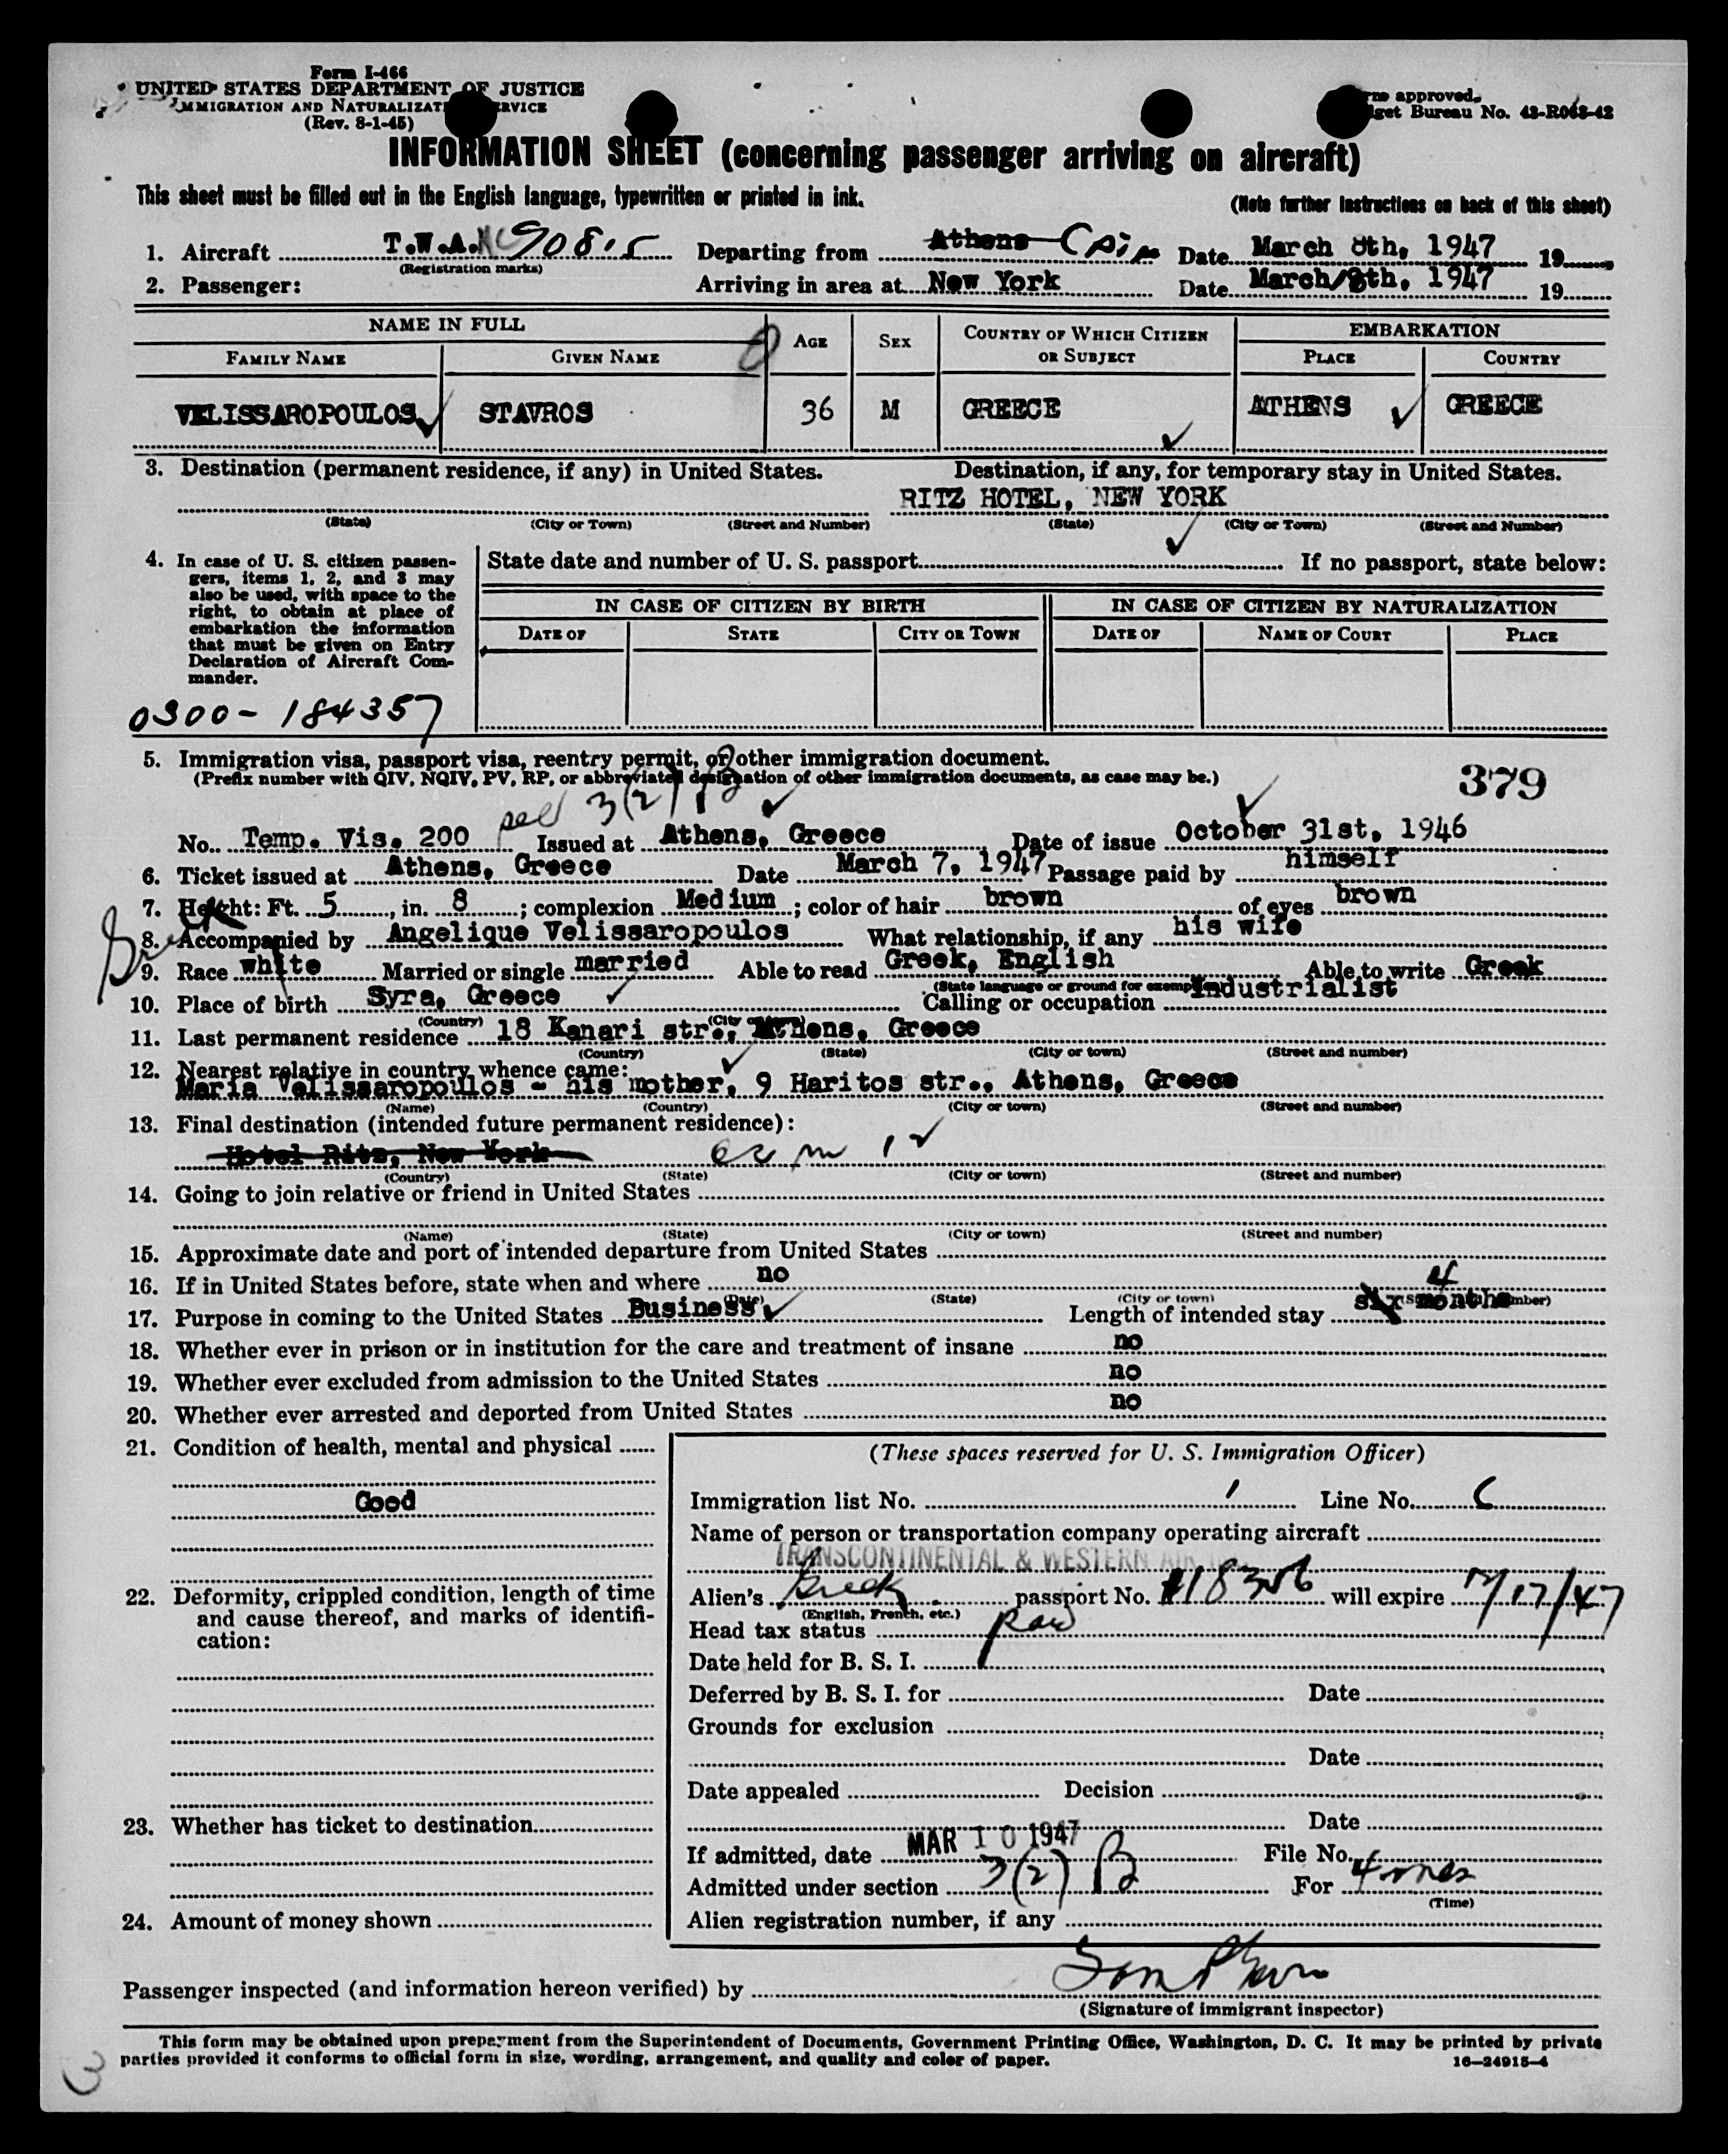 Form I-466
UNITED STATES DEPARTMENT OF JUSTICE
IMMIGRATION AND NATURALIZAT RVICE
(Rev. 8-1-45)
rm approved.
get Bureau No. 43-R043-42
INFORMATION SHEET (concerning passenger arriving on aircraft)
This sheet must be filled out in the English language, typewritten or printed in ink.
(Note further instructions on back of this sheet)
1. Aircraft T.W.A. NC 90815 Departing from Athens Date March 8th, 1947 19
(Registration marks)
2. Passenger: Arriving in area at New York Date March/8th, 1947 19
NAME IN FULL AGE SEX COUNTRY OF WHICH CITIZEN OR SUBJECT EMBARKATION
FAMILY NAME GIVEN NAME PLACE COUNTRY
VELISSAROPOULOS STAVROS 36 M GREECE ATHENS GREECE
3. Destination (permanent residence, if any) in United States. Destination, if any, for temporary stay in United States.
RITZ HOTEL, NEW YORK
(State) (City or Town) (Street and Number) (State) (City or Town) (Street and Number)
4. In case of U. S. citizen passen-
gers, items 1, 2, and 3 may
also be used, with space to the
right, to obtain at place of
embarkation the information
that must be given on Entry
Declaration of Aircraft Com-
mander.
State date and number of U. S. passport If no passport, state below:
IN CASE OF CITIZEN BY BIRTH IN CASE OF CITIZEN BY NATURALIZATION
DATE OF STATE CITY OR TOWN DATE OF NAME OF COURT PLACE
0300-184357
5. Immigration visa, passport visa, reentry permit, or other immigration document.
(Prefix number with QIV, NQIV, PV, RP, or abbreviated designation of other immigration documents, as case may be.)
379
3(2) B
No. Temp. Vis. 200 Issued at Athens, Greece Date of issue October 31st, 1946
6. Ticket issued at Athens, Greece Date March 7, 1947 Passage paid by himself
7. Height: Ft. 5, in. 8; complexion Medium; color of hair brown of eyes brown
8. Accompanied by Angelique Velissaropoulos What relationship, if any his wife
Greek
9. Race white Married or single married Able to read Greek, English Able to write Greek
(State language or ground for exemption)
10. Place of birth Syra, Greece Calling or occupation Industrialist
(Country) (City or town)
11. Last permanent residence 18 Kanari str., Athens, Greece
(Country) (State) (City or town) (Street and number)
12. Nearest relative in country whence came:
Maria Velissaropoulos - his mother, 9 Haritos str., Athens, Greece
(Name) (Country) (City or town) (Street and number)
13. Final destination (intended future permanent residence):
Hotel Ritz, New York
(Country) (State) (City or town) (Street and number)
14. Going to join relative or friend in United States
(Name) (State) (City or town) (Street and number)
15. Approximate date and port of intended departure from United States
16. If in United States before, state when and where no
(Date) (State) (City or town)
4
17. Purpose in coming to the United States Business Length of intended stay six months
18. Whether ever in prison or in institution for the care and treatment of insane no
19. Whether ever excluded from admission to the United States no
20. Whether ever arrested and deported from United States no
21. Condition of health, mental and physical
Good
22. Deformity, crippled condition, length of time
and cause thereof, and marks of identifi-
cation:
23. Whether has ticket to destination
24. Amount of money shown
(These spaces reserved for U. S. Immigration Officer)
Immigration list No. 1 Line No. 6
Name of person or transportation company operating aircraft
TRANSCONTINENTAL & WESTERN AIR
Alien's Greek passport No. #18356 will expire 12/17/47
(English, French, etc.)
Head tax status
Date held for B. S. I.
Deferred by B. S. I. for Date
Grounds for exclusion
Date
Date appealed Decision
Date
If admitted, date MAR 10 1947 File No.
Admitted under section 3(2) B For 4 mos
(Time)
Alien registration number, if any
Passenger inspected (and information hereon verified) by
(Signature of immigrant inspector)
This form may be obtained upon prepayment from the Superintendent of Documents, Government Printing Office, Washington, D. C. It may be printed by private
parties provided it conforms to official form in size, wording, arrangement, and quality and color of paper. 16—24915-4
3